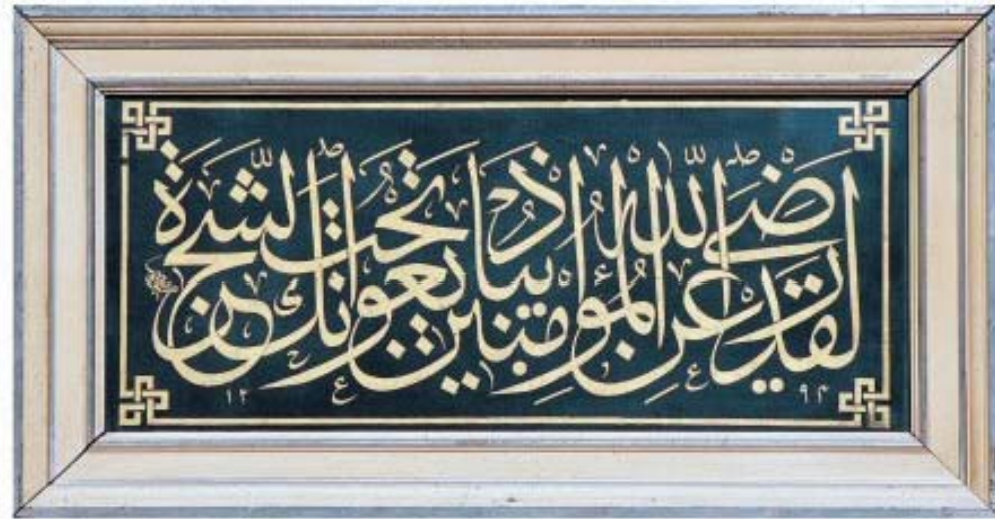 لقد رضي الله عن المؤمنين إذ يبايعونك تحت الشجرة
١٢ ٩٤